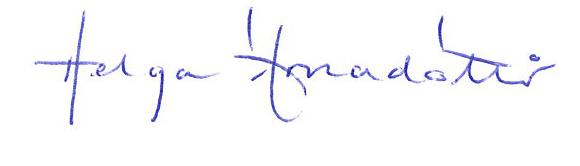 Helga Árnadóttir